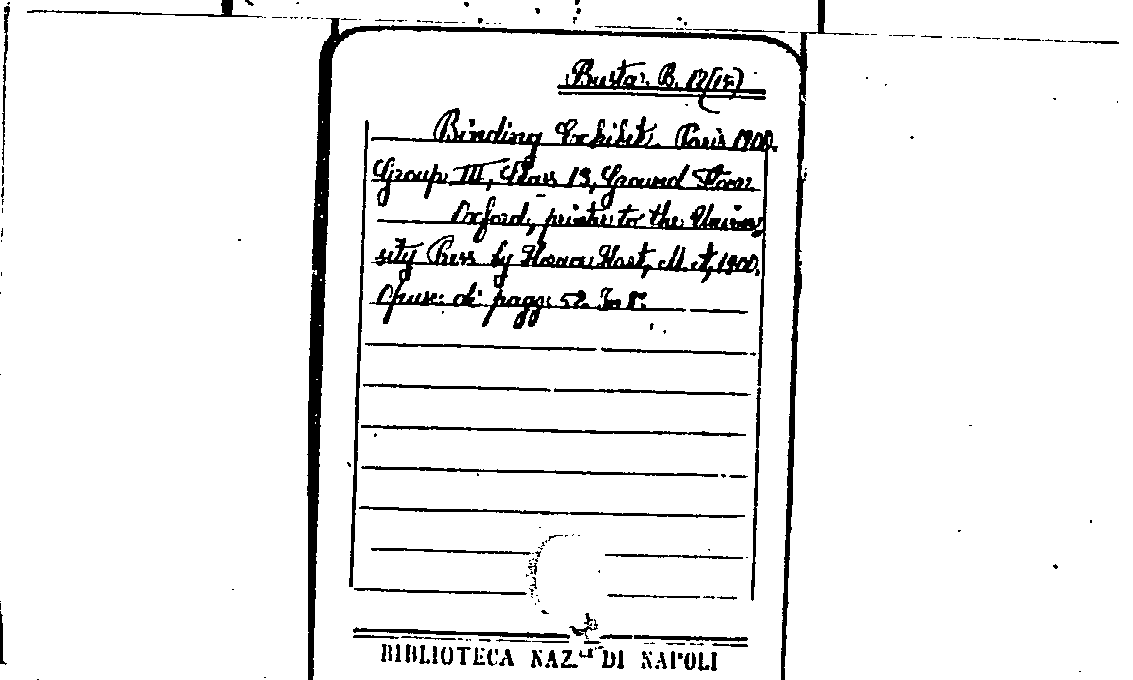 Busta: B. 12(15)
Binding Exhibit. Paris 1900.
Group III, Class 13, Ground Floor
Oxford, printer to the Univer-
sity Press by Horace Hart, M.A, 1900.
Opusc: di pagg: 52. In 8º.
BIBLIOTECA NAZ. DI NAPOLI